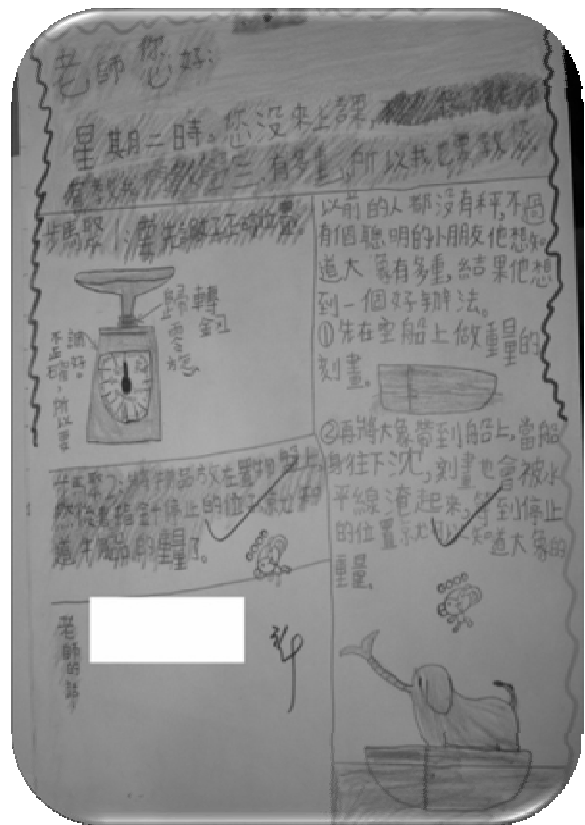 老師您好:
星期二時。您沒來上課,
有多重,所以我也要教您
步驟1:需先歸零正的位置。
歸轉
零鈕
說好。
不正確,所以要
步驟2:將物品放在置物盤上,
然後看指針停止的位子就知
道牛物品的重量了。
老師的話
以前的人都沒有秤,不過
有個聰明的小朋友他想知
道大象有多重,結果他想
到一個好辦法。
①先在空船上做重量的
刻畫。
②再將大象帶到船上,當船
身往下沈,刻畫也會被水
平線淹起來,等到停止
的位置就可以知道大象的
重量。